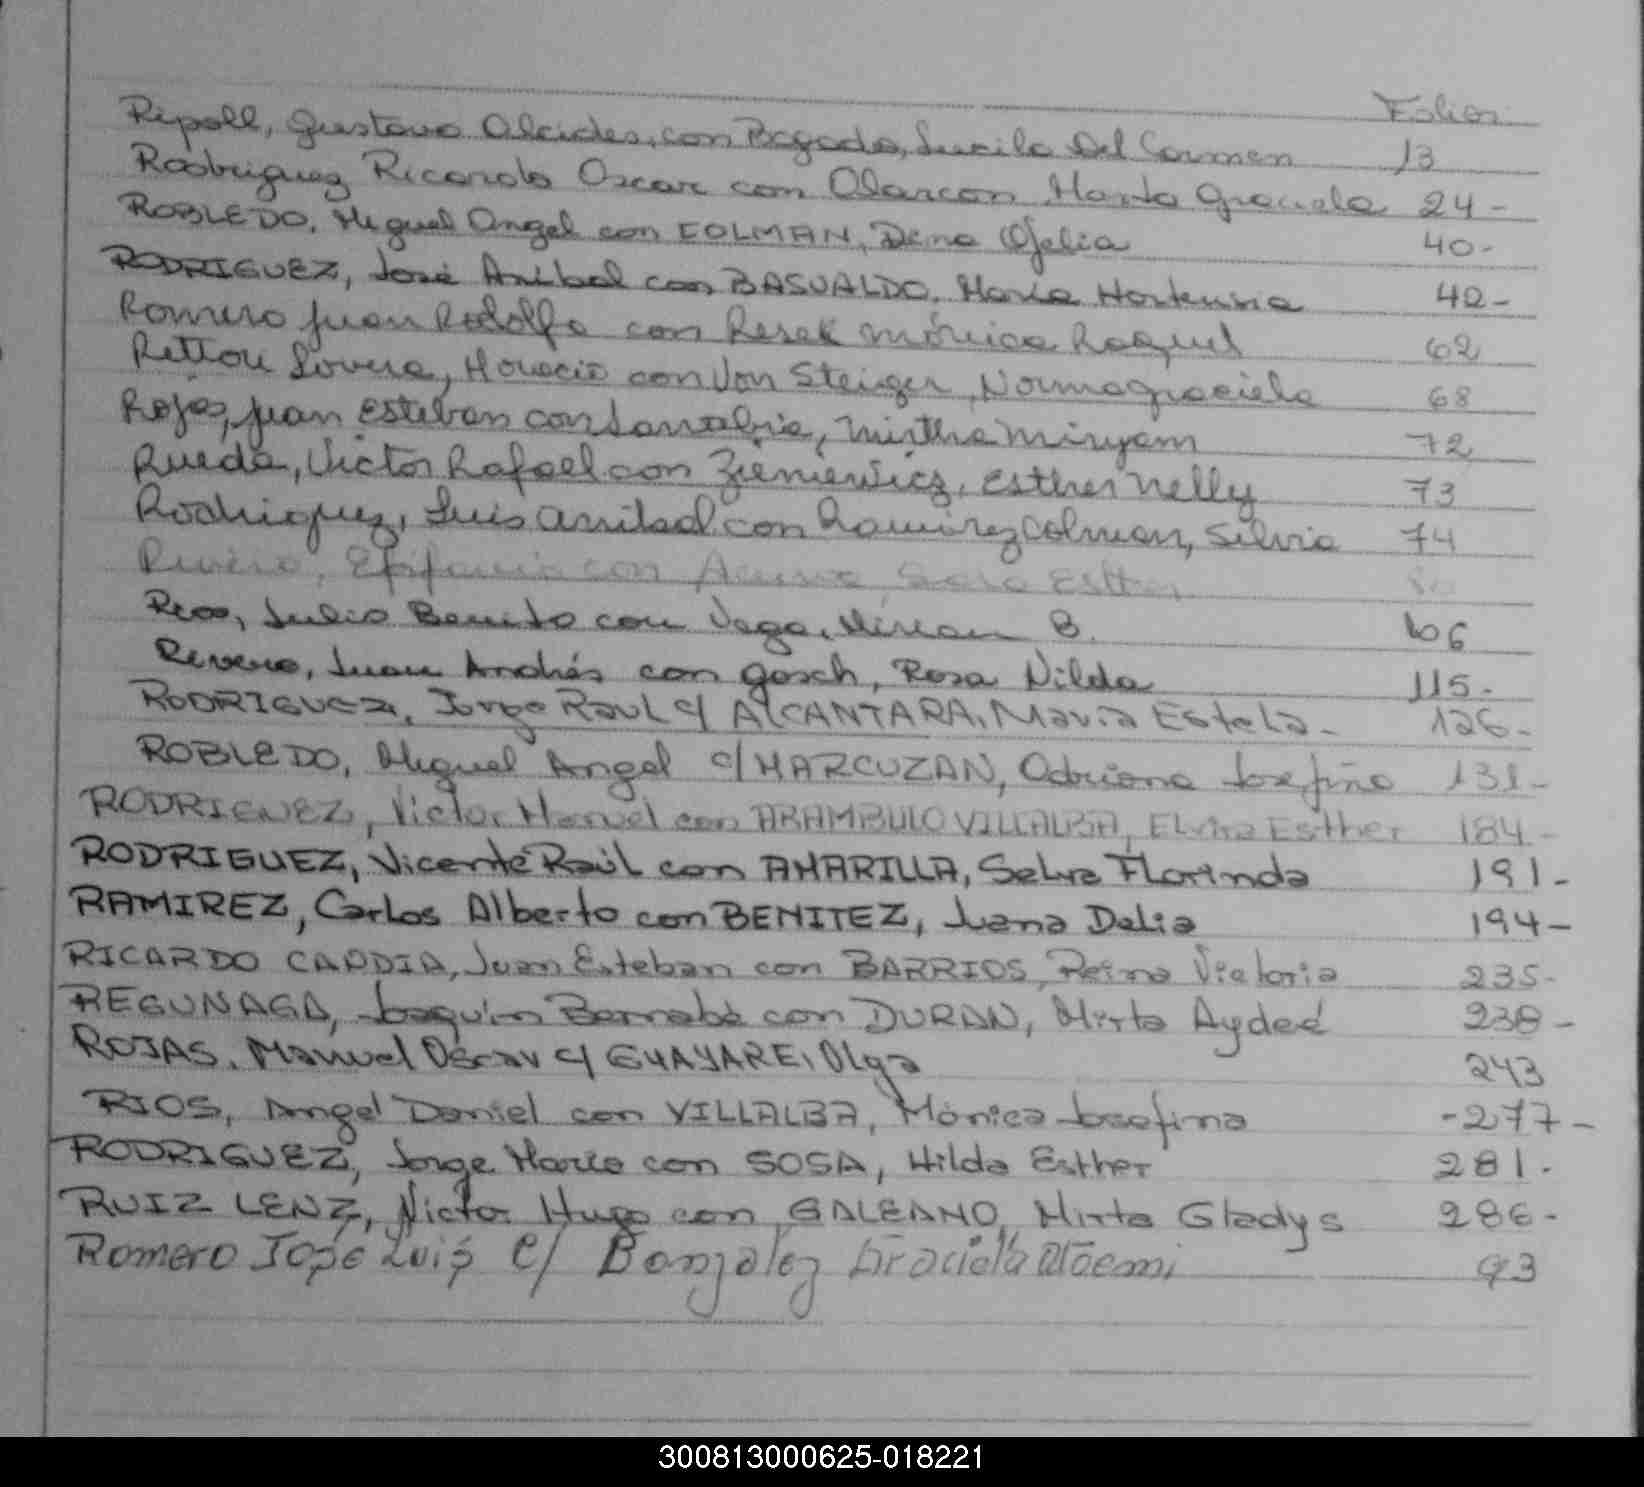 Folios
Ripoll, Gustavo Alcides, con Bogado, Lucila Del Carmen 13
Rodriguez Ricardo Oscar con Alarcon Marta Graciela 24-
ROBLEDO, Miguel Angel con COLMAN, Dina Ofelia 40-
RODRIGUEZ, José Anibal con BASUALDO, María Hortensia 42-
Romero Juan Rodolfo con Resek Mónica Raquel 62
Rettori Lovera, Horacio con Von Steiger, Norma graciela 68
Rojas, Juan Esteban con Sanabria, Mirtha Miryam 72
Rueda, Victor Rafael con Ziemievicz, Esther Nelly 73
Rodriguez, Luis Anibal con Ramirez Colman, Silvia 74
Rivero, Epifanio con Sara Esther
Rios, Julio Benito con Vega, Mirian B. 106
Rivero, Juan Andrés con Gosch, Rosa Nilda 115-
RODRIGUEZ, Jorge Raul c/ ALCANTARA, Maria Estela- 126-
ROBLEDO, Miguel Angel c/ MARCUZAN, Adriana Josefina 131-
RODRIGUEZ, Victor Manuel con ARAMBULO VILLALBA, Elvira Esther 184-
RODRIGUEZ, Vicente Raúl con AMARILLA, Selva Florinda 191-
RAMIREZ, Carlos Alberto con BENITEZ, Juana Delia 194-
RICARDO CARDIA, Juan Esteban con BARRIOS, Reina Victoria 235-
REGUNAGA, Joaquín Bernabé con DURAN, Mirta Aydeé 238-
ROJAS, Manuel Oscar c/ GUAYARE, Olga 243
RIOS, Angel Daniel con VILLALBA, Mónica Josefina -277-
RODRIGUEZ, Jorge Mario con SOSA, Hilda Esther 281-
RUIZ LENZ, Victor Hugo con GALEANO, Mirta Gladys 286-
Romero José Luis c/ Gonzalez Graciela Noemi 93
300813000625-018221